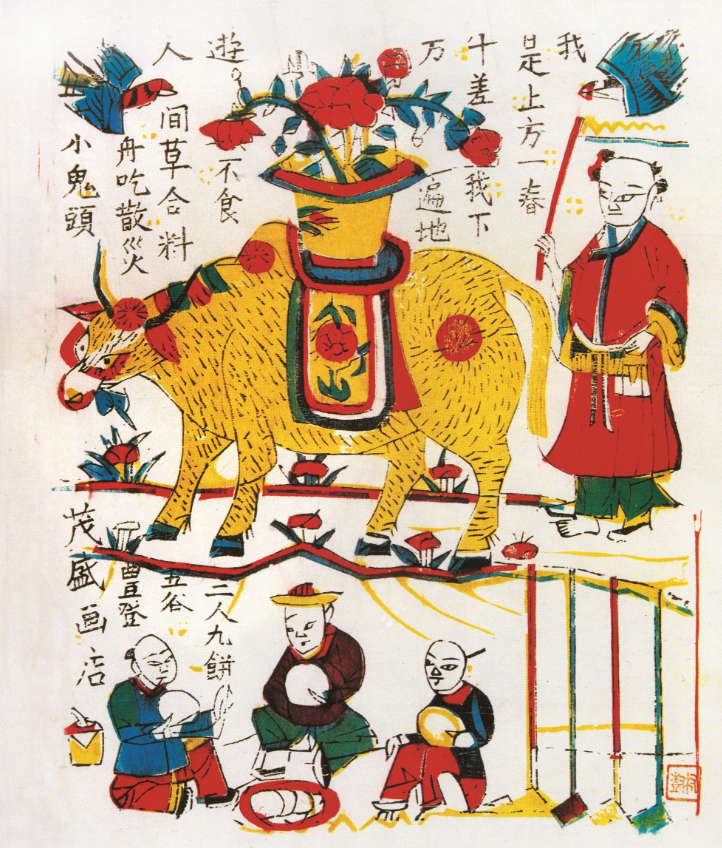 我
是上方一春
牛差我下
万遍地
遊不食
人間草合料
舟吃散災
小鬼頭
三人九餅
五谷
豊登
茂盛画店